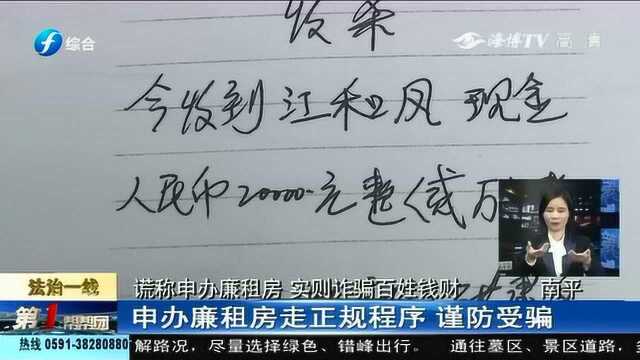 综合
海博TV 高清
收条
今收到江和凤现金
人民币20000.元整(贰万
法治一线
谎称申办廉租房 实则诈骗百姓钱财
南平
第1帮帮团
申办廉租房走正规程序 谨防受骗
热线 0591-38280880
解路况,尽量选择绿色、错峰出行。 通往墓区、景区道路,